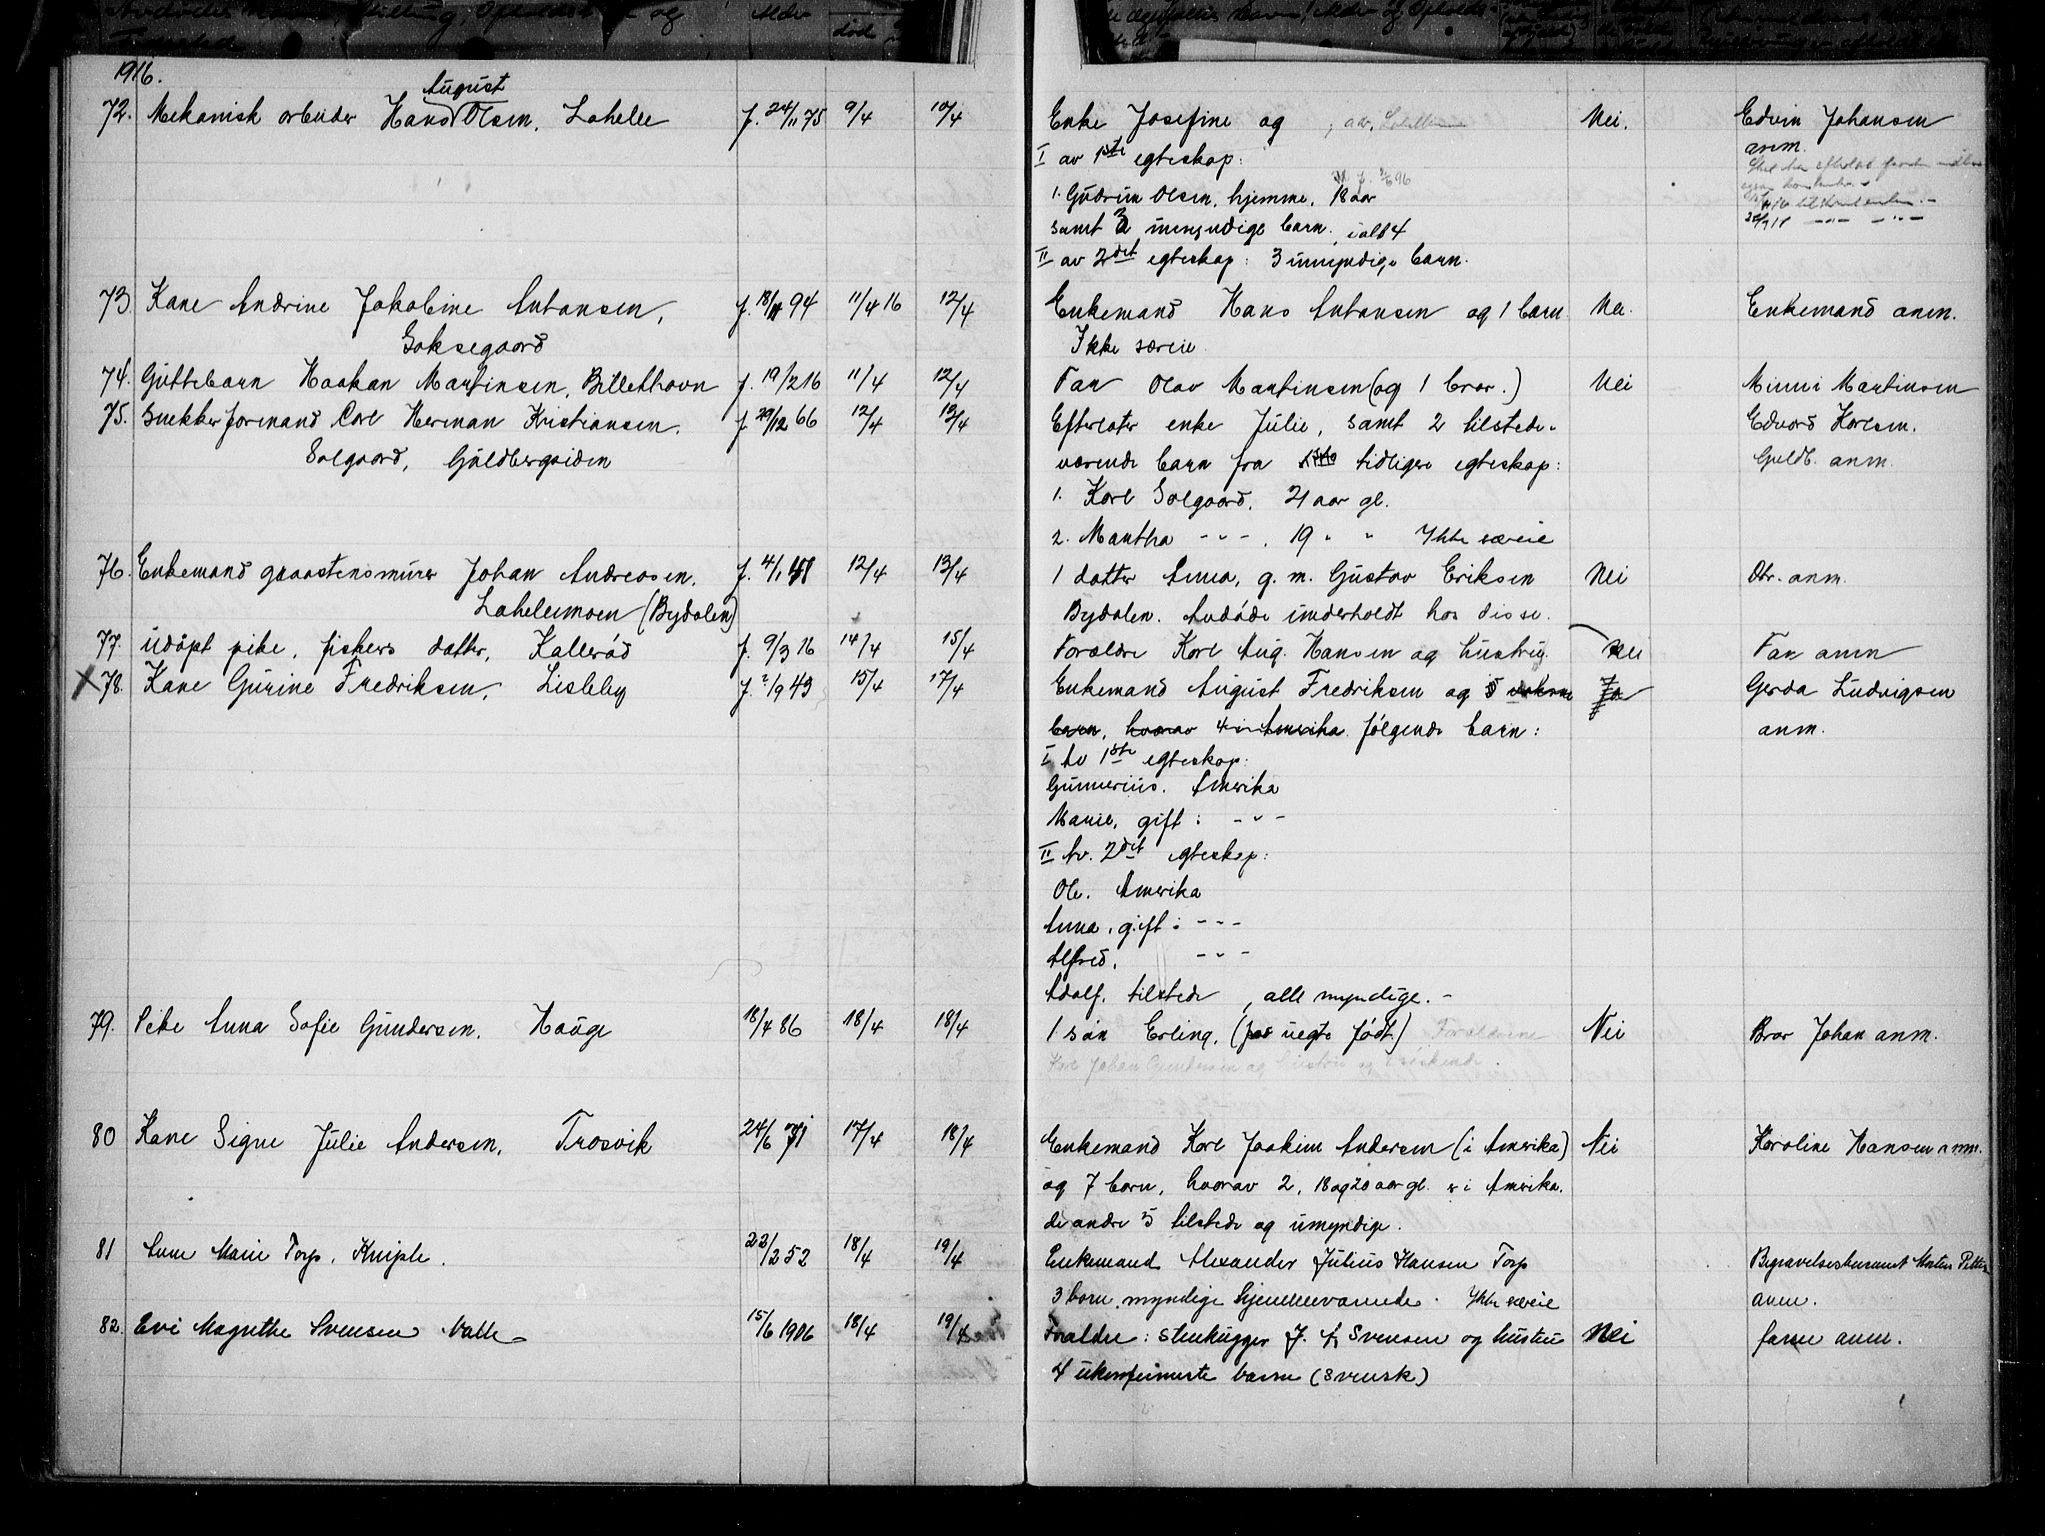 1916.
72. Mekanisk arbeider Hans August Olsen, Lahelle f. 24/11 75 9/4 10/4 Enke Josefine og Nei. Edvin Johansen
I av 1ste egteskap: anm.
1. Gudrun Olsen, hjemme, 18 aar
samt 3 umyndige barn. ialt 4
II av 2det egteskap: 3 umyndige barn.
73. Kone Andrine Jakobine Antonsen, f. 18/11 94 11/4 16 12/4 Enkemand Hans Antonsen og 1 barn Nei. Enkemand anm.
Goksegaard Ikke særeie
74. Guttebarn Haakan Martinsen, Billethavn f. 19/2 16 11/4 12/4 Far Olav Martinsen (og 1 bror.) Nei Minni Martinsen
75. Snekkerformand Carl Herman Kristiansen. f 29/12 66 12/4 13/4 Efterlater enke Julie, samt 2 tilstede- Edvard Karlsen.
Solgaard, Guldbergsiden værende barn fra 1ste tidligere egteskap: Guldb. anm.
1. Karl Solgaard. 21 aar gl.
2. Martha -"- . 19 " " Ikke særeie
76. Enkemand graastensmurer Johan Andreasen. f. 4/1 41 12/4 13/4 1 datter Anna, g. m. Gustav Eriksen Nei Dtr. anm.
Lahellemoen (Bydalen) Bydalen. Avdøde underholdt hos disse.
77. udøpt pike, fiskers datter, Kallerød f. 9/3 16 14/4 15/4 Forældre Karl Aug. Hansen og hustru. Nei Far anm
78. Kone Gurine Fredriksen, Lisleby f. 2/9 43 15/4 17/4 Enkemand August Fredriksen og 5 voksne Ja Gerda Ludvigsen
barn, hvorav 4 i Amerika. følgende barn: anm.
I Av 1ste egteskap:
Gunnerius. Amerika
Marie, gift: -"-
II Av. 2det egteskap:
Ole. Amerika
Anna, gift: -"-
Alfred, -"-
Adolf, tilstede, alle myndige. -
79. Pike Anna Sofie Gundersen. Hauge 18/4 86 18/4 18/4 1 søn Erling, (før uegte født) Forældrene Nei Bror Johan anm.
Karl Johan Gundersen og hustru og søskende.
80 Kone Signe Julie Andersen, Trosvik 24/6 71 17/4 18/4 Enkemand Karl Joakim Andersen (i Amerika) Nei Karoline Hansen anm.
og 7 barn, hvorav 2, 18 og 20 aar gl. er i Amerika.
de andre 5 tilstede og umyndige.
81 Anne Marie Torp, Kniple. 22/2 52 18/4 19/4 Enkemand Alexander Julius Hansen Torp Begravelseskonsent Morten Petters
3 barn, myndige hjemmeværende. Ikke særeie anm.
82. Evi Magrethe Svensen Valle 15/6 1906 18/4 19/4 Forældre: stenhugger J. A. Svensen og hustru Nei faren anm.
4 ukonfirmerte barn (svensk)